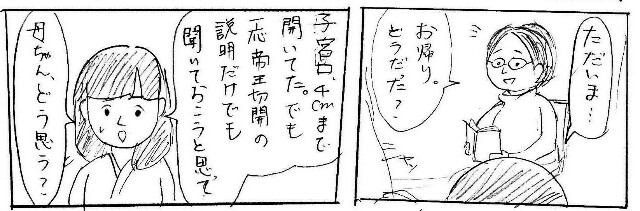 ただいま…
お帰り。
どうだった？
ニャン
子宮口、4cmまで
開いてた。でも
一応帝王切開の
説明だけでも
聞いておこうと思って
母ちゃん、どう思う？